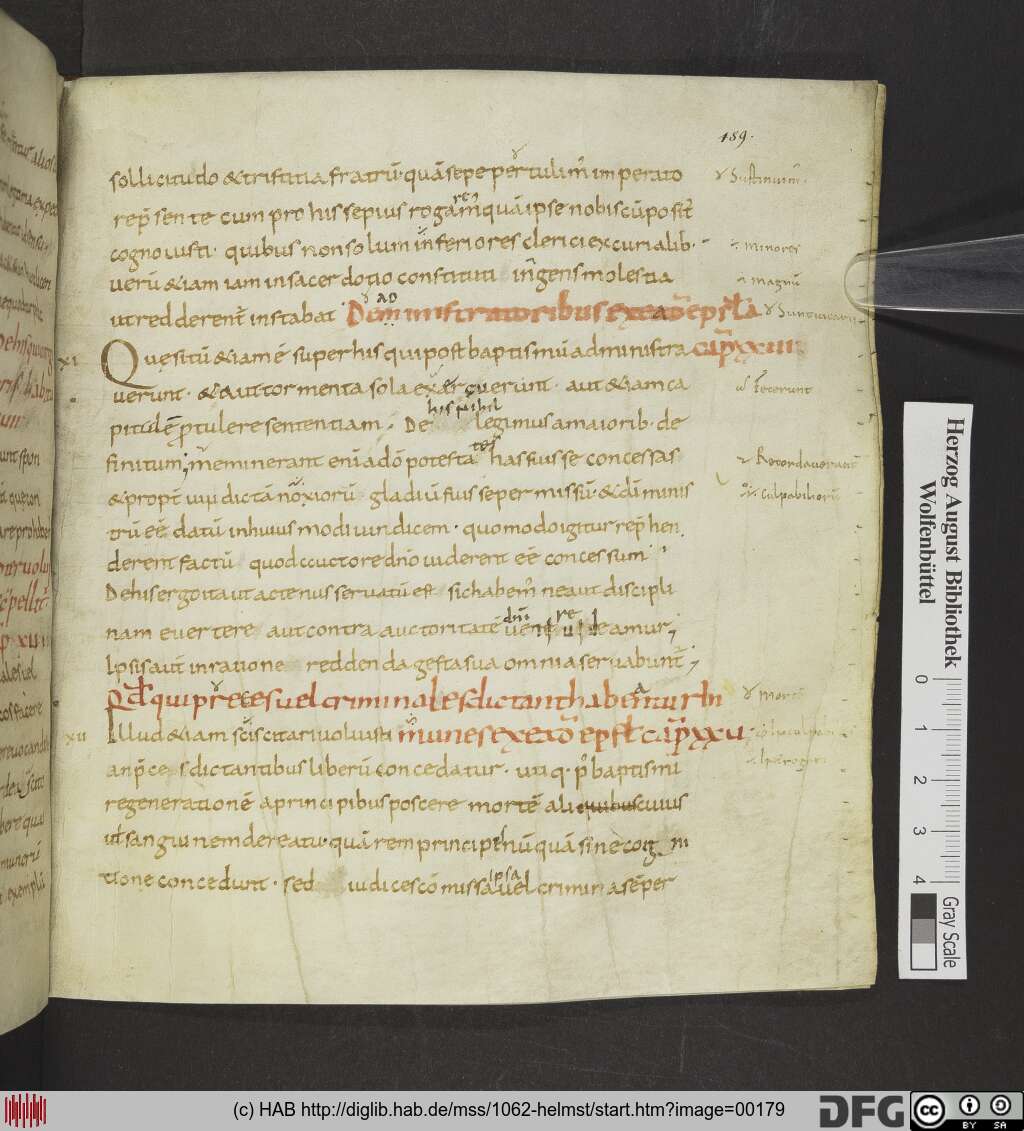 189.
sollicitudo & tristitia fratrū. quā sepe pertulam̄ imperato
rep̄sente cum pro his sepius rogam̄ quā ipse nobiscū posit̄
cognouisti. quibus non solum inferiores clerici ex curialib.
uerū & iam iam in sacerdotio constituti ingens molestia
ut redderent̄ instabat De administratoribus ex eadē epist̄la
Quesitū & iam ē super his qui post baptismū administra cap̄ xxiiii
uerunt. & aut tormenta sola exercuerunt. aut & iam ca
pitalē p̄tulere sententiam. De his nihil legimus a maiorib. de
finitum; meminerant eni a dō potestates has fuisse concessas
& propt̄ uindictā noxiorū gladiū fuisse permissū. & dī minis
trū eē datū in huius modi uindicem. quomodo igitur rep̄hen
derent factū quod auctore dn̄o uiderent eē concessum
De his ergo ita ut actenus seruatū est sic habem̄ ne aut discipli
nam euertere aut contra auctoritatē dn̄i uenire uideamur;
Ipsis aut in ratione reddenda gesta sua omnia seruabunt̄;
Qd̄ qui preces uel criminales dictant habeantur in
Illud & iam sciscitari uoluisti munes ex eadē epist̄ cap̄ xxu
an p̄ces dictantibus liberū concedatur. utiq. p̄ baptismi
regenerationē a principibus poscere mortē alicuius
uel sanguinem de reatu. quā rem principes nūquā sine cogni
tione concedunt. sed iudices cōmissa ipsa uel crimina sēper
xi
xii
Sustinuim̄
minores
magnū
Fecerunt
Recordauerunt
culpabiliorū
Morte
(c) HAB http://diglib.hab.de/mss/1062-helmst/start.htm?image=00179
DFG
cc BY SA
Herzog August Bibliothek
Wolfenbüttel
0 1 2 3 4
Gray Scale